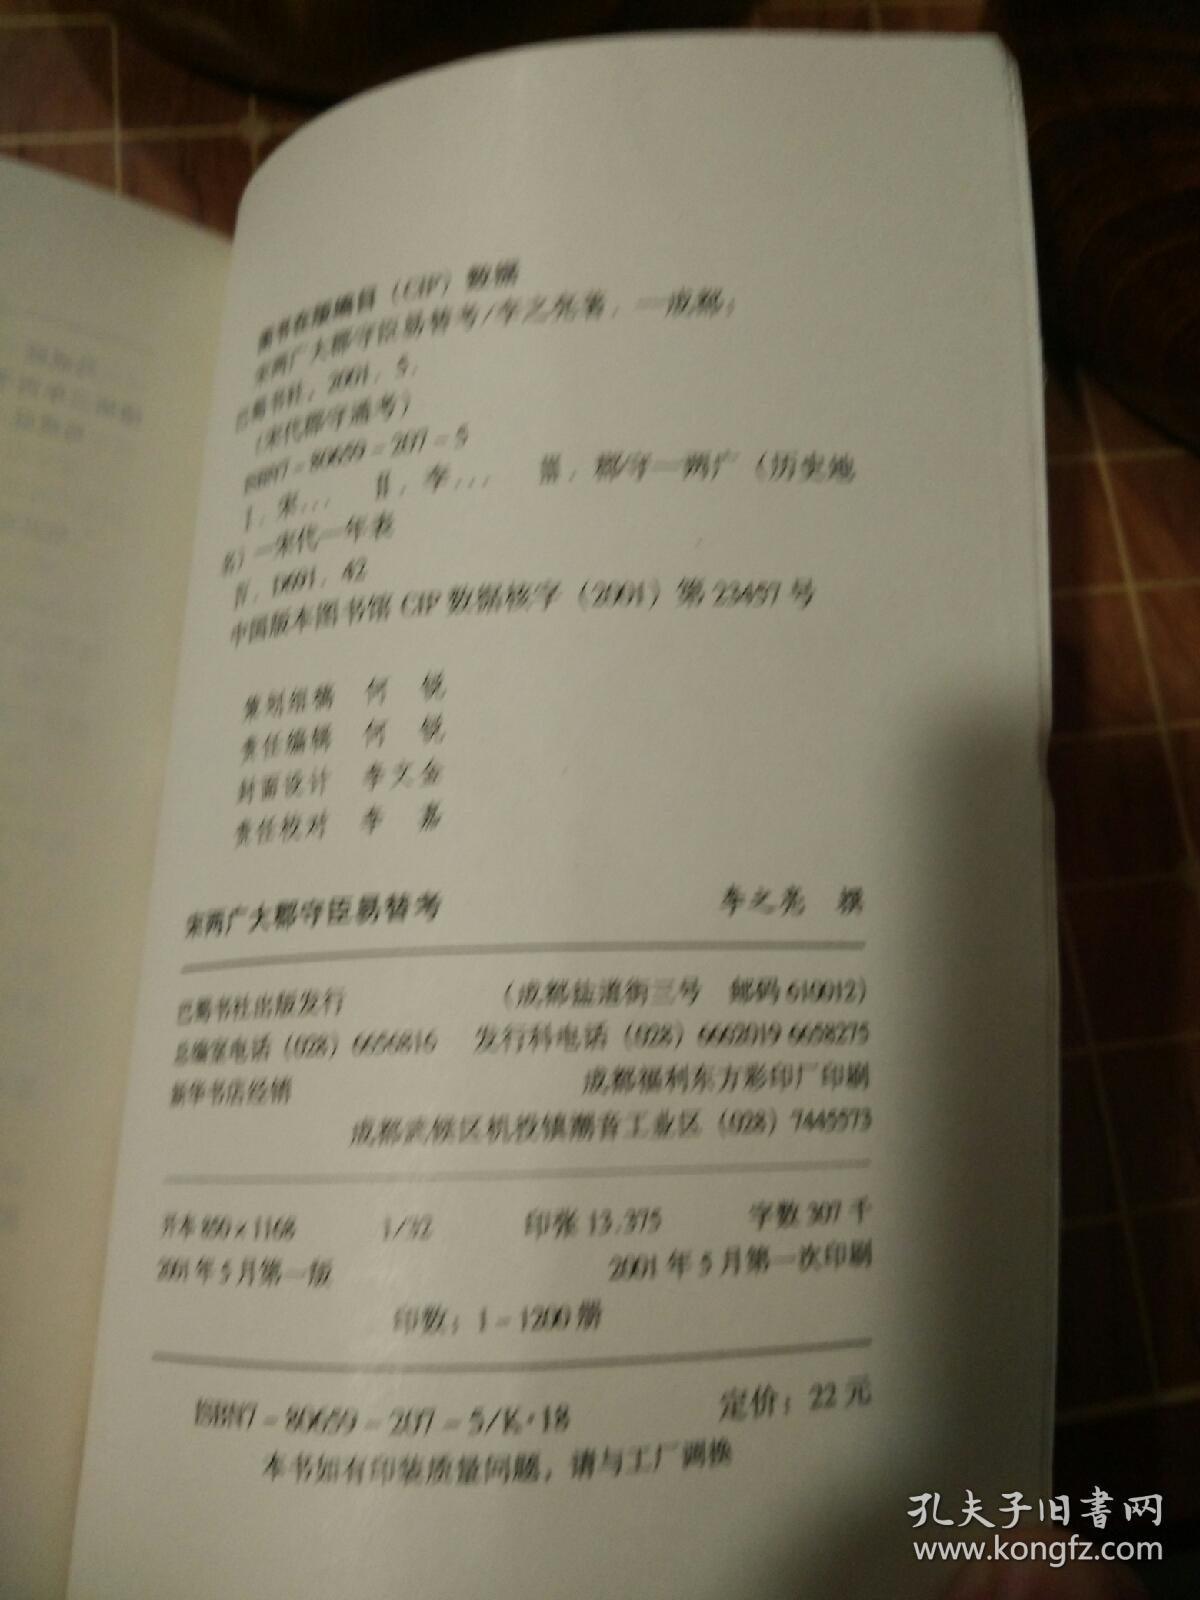 图书在版编目（CIP）数据
宋两广大郡守臣易替考/李之亮著．—成都：
巴蜀书社，2001．5．
（宋代郡守通考）
ISBN7－80659－207－5
Ⅰ．宋… Ⅱ．李… Ⅲ．郡守—两广（历史地
名）—宋代—年表
Ⅳ．D691．42
中国版本图书馆 CIP 数据核字（2001）第 23457 号
策划组稿 何 锐
责任编辑 何 锐
封面设计 李文金
责任校对 李 嘉
宋两广大郡守臣易替考 李之亮 撰
巴蜀书社出版发行 （成都盐道街三号 邮码 610012）
总编室电话（028）6656816 发行科电话（028）6662019 6658275
新华书店经销 成都福利东方彩印厂印刷
成都武候区机投镇潮音工业区（028）7445573
开本 850×1168 1/32 印张 13.375 字数 307 千
2001 年 5 月第一版 2001 年 5 月第一次印刷
印数：1－1200 册
ISBN7－80659－207－5/K·18 定价：22 元
本书如有印装质量问题，请与工厂调换
孔夫子旧书网
www.kongfz.com